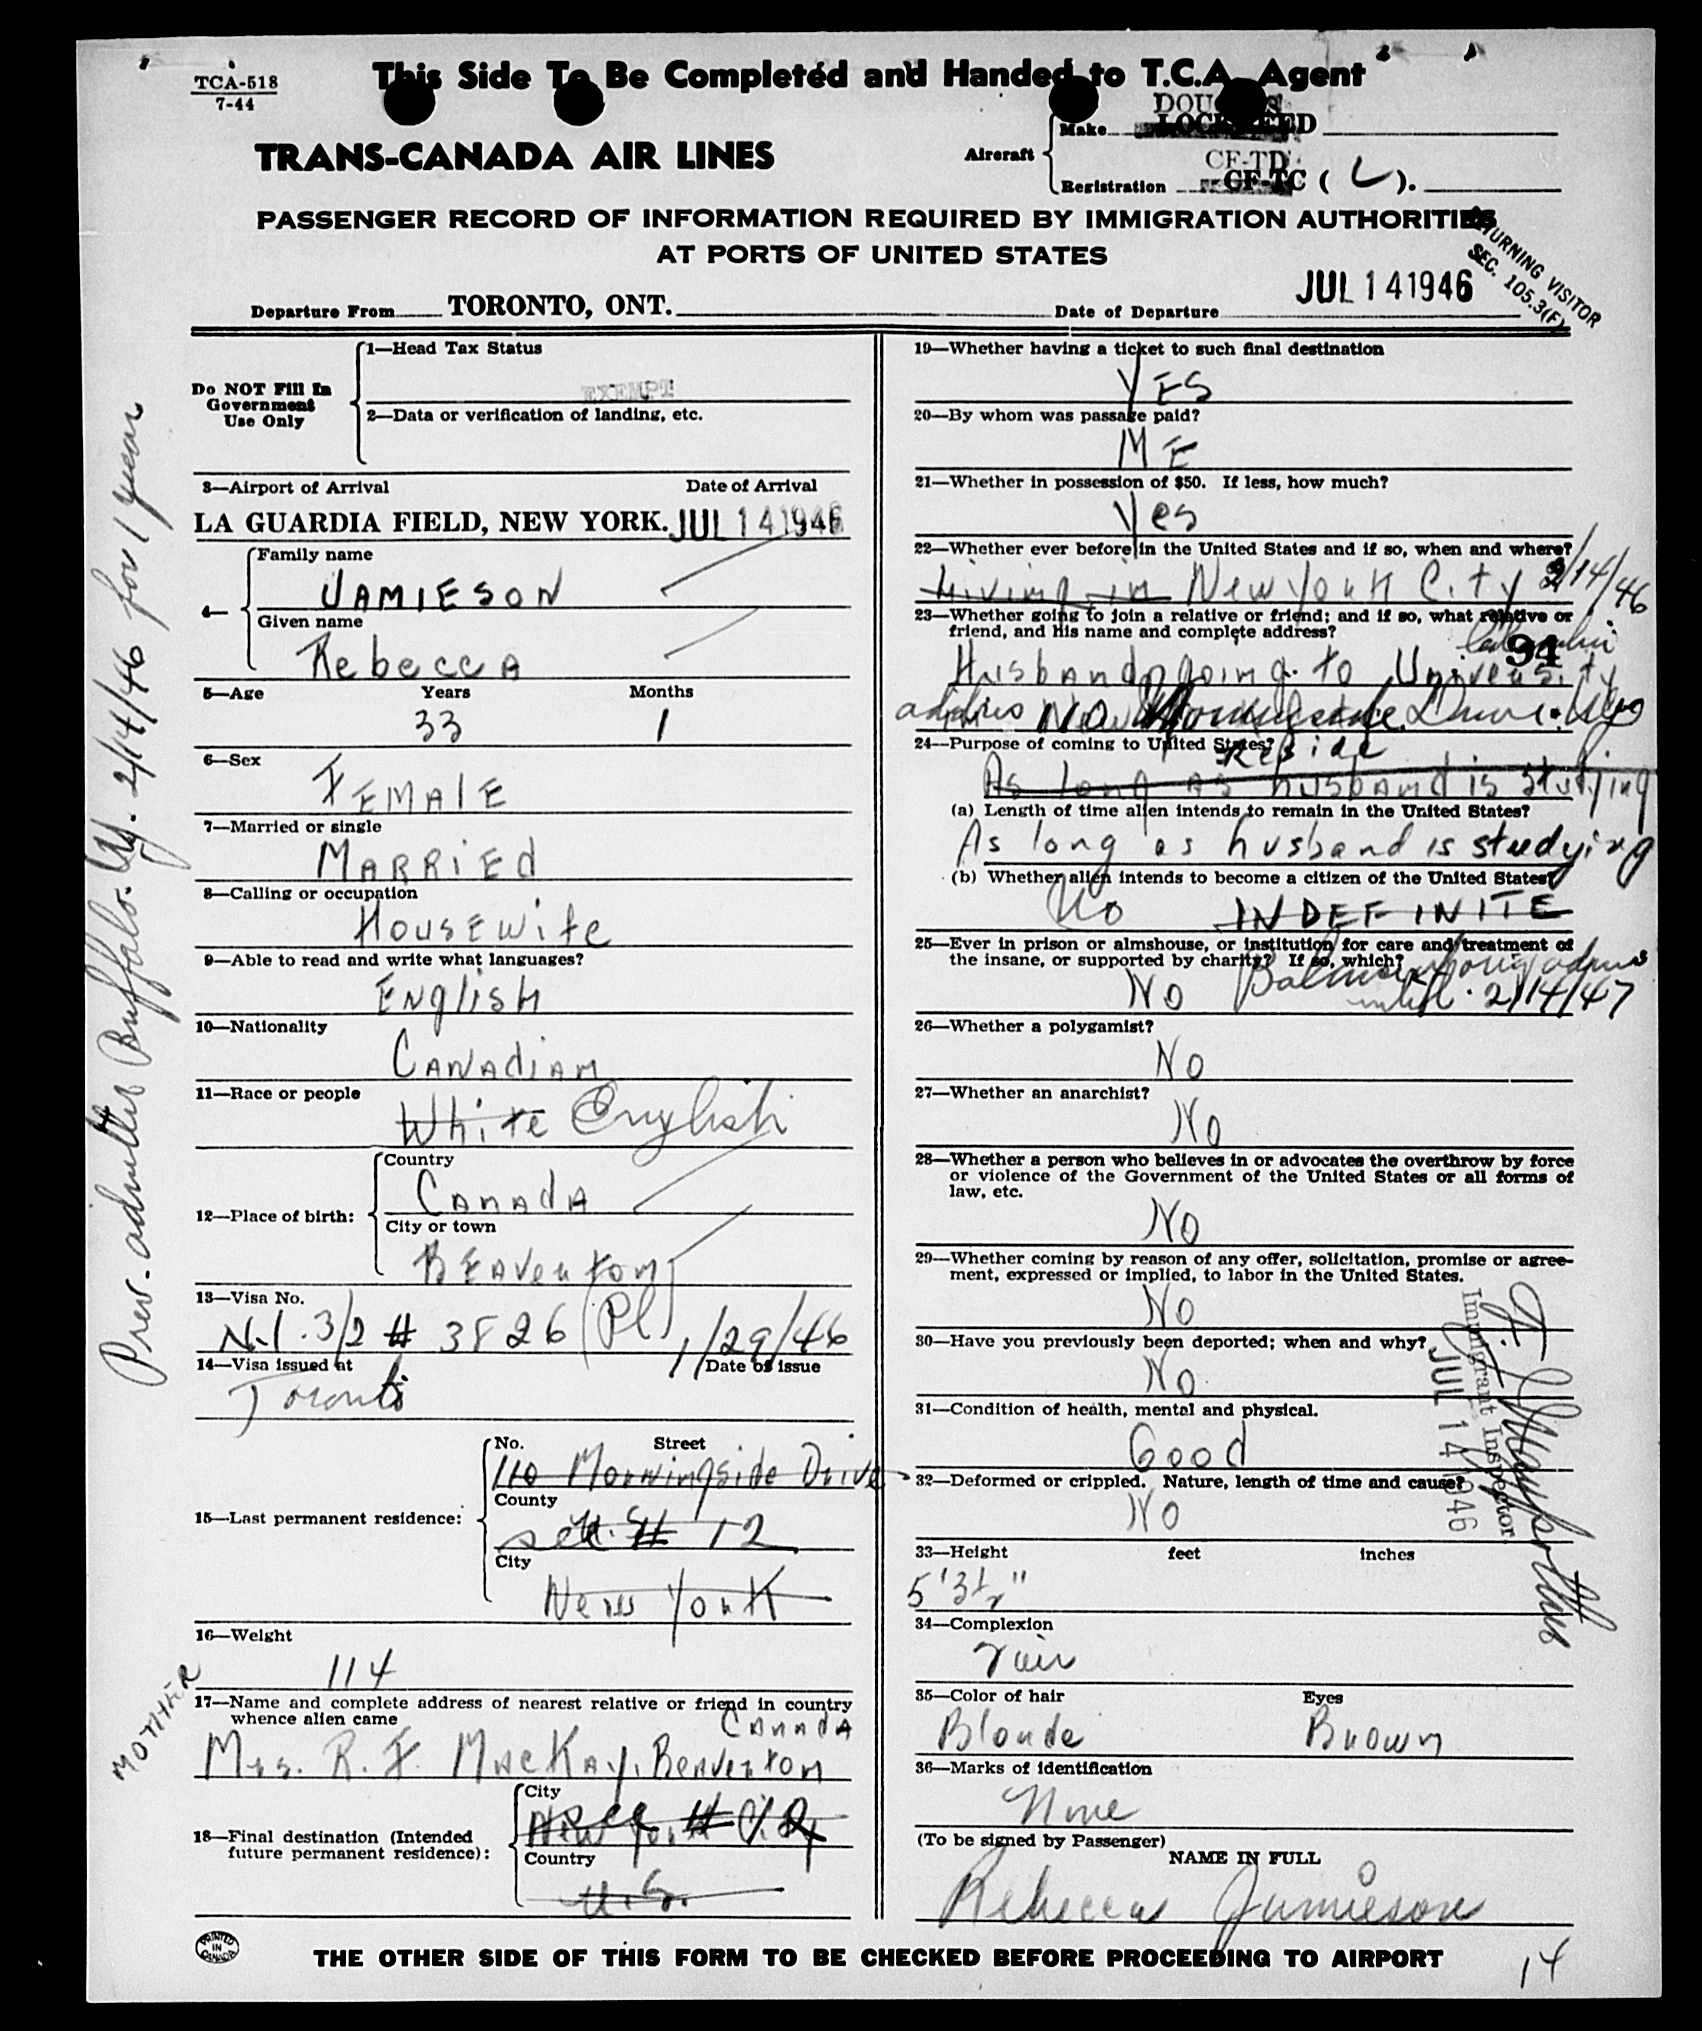 TCA-518
7-44
This Side To Be Completed and Handed to T.C.A. Agent
TRANS-CANADA AIR LINES
Aircraft
Make
DOUGLAS
LOCKHEED
CF-TD
Registration CF-TC ( L ).
PASSENGER RECORD OF INFORMATION REQUIRED BY IMMIGRATION AUTHORITIES
AT PORTS OF UNITED STATES
RETURNING VISITOR
SEC. 105.3(F)
Departure From TORONTO, ONT.
Date of Departure JUL 14 1946
Prev. admitted Buffalo. Ny. 2/14/46 for 1 year
Do NOT Fill In
Government
Use Only
1—Head Tax Status
EXEMPT
2—Data or verification of landing, etc.
3—Airport of Arrival Date of Arrival
LA GUARDIA FIELD, NEW YORK. JUL 14 1946
4—
Family name
JAMIESON
Given name
Rebecca
5—Age Years Months
33 1
6—Sex
FEMALE
7—Married or single
MARRIEd
8—Calling or occupation
HOUSEWife
9—Able to read and write what languages?
ENglisH
10—Nationality
CANAdiAN
11—Race or people
White English
12—Place of birth:
Country
CANAdA
City or town
BEAVERTON
13—Visa No.
N.I. 3/2 # 3826 (Pl) 1/29/46
14—Visa issued at Date of issue
Toronto
15—Last permanent residence:
No. Street
110 Morningside Drive
County
see # 12
City
New York
16—Weight
114
MOTHER
17—Name and complete address of nearest relative or friend in country
whence alien came
CANADA
Mrs. R. F. MacKay, BEAVERTON
18—Final destination (Intended
future permanent residence):
City
New York City
see # 12
Country
U.S.
19—Whether having a ticket to such final destination
YES
20—By whom was passage paid?
ME
21—Whether in possession of $50. If less, how much?
Yes
22—Whether ever before in the United States and if so, when and where?
Living in New York City 2/14/46
23—Whether going to join a relative or friend; and if so, what relative or
friend, and his name and complete address?
94
Columbia
Husband going to University
address 110 Morningside Drive. NYC
24—Purpose of coming to United States?
Reside
As long as husband is studying
(a) Length of time alien intends to remain in the United States?
As long as husband is studying
(b) Whether alien intends to become a citizen of the United States?
No INDEFINITE
25—Ever in prison or almshouse, or institution for care and treatment of
the insane, or supported by charity? If so, which?
Balance of orig adms
No until 2/14/47
26—Whether a polygamist?
No
27—Whether an anarchist?
No
28—Whether a person who believes in or advocates the overthrow by force
or violence of the Government of the United States or all forms of
law, etc.
No
29—Whether coming by reason of any offer, solicitation, promise or agree-
ment, expressed or implied, to labor in the United States.
No
30—Have you previously been deported; when and why?
No
Immigrant Inspector
JUL 14 1946
31—Condition of health, mental and physical.
Good
32—Deformed or crippled. Nature, length of time and cause?
No
33—Height feet inches
5'3½"
34—Complexion
Fair
35—Color of hair Eyes
Blonde Brown
36—Marks of identification
None
(To be signed by Passenger)
NAME IN FULL
Rebecca Jamieson
PRINTED IN CANADA
THE OTHER SIDE OF THIS FORM TO BE CHECKED BEFORE PROCEEDING TO AIRPORT
14